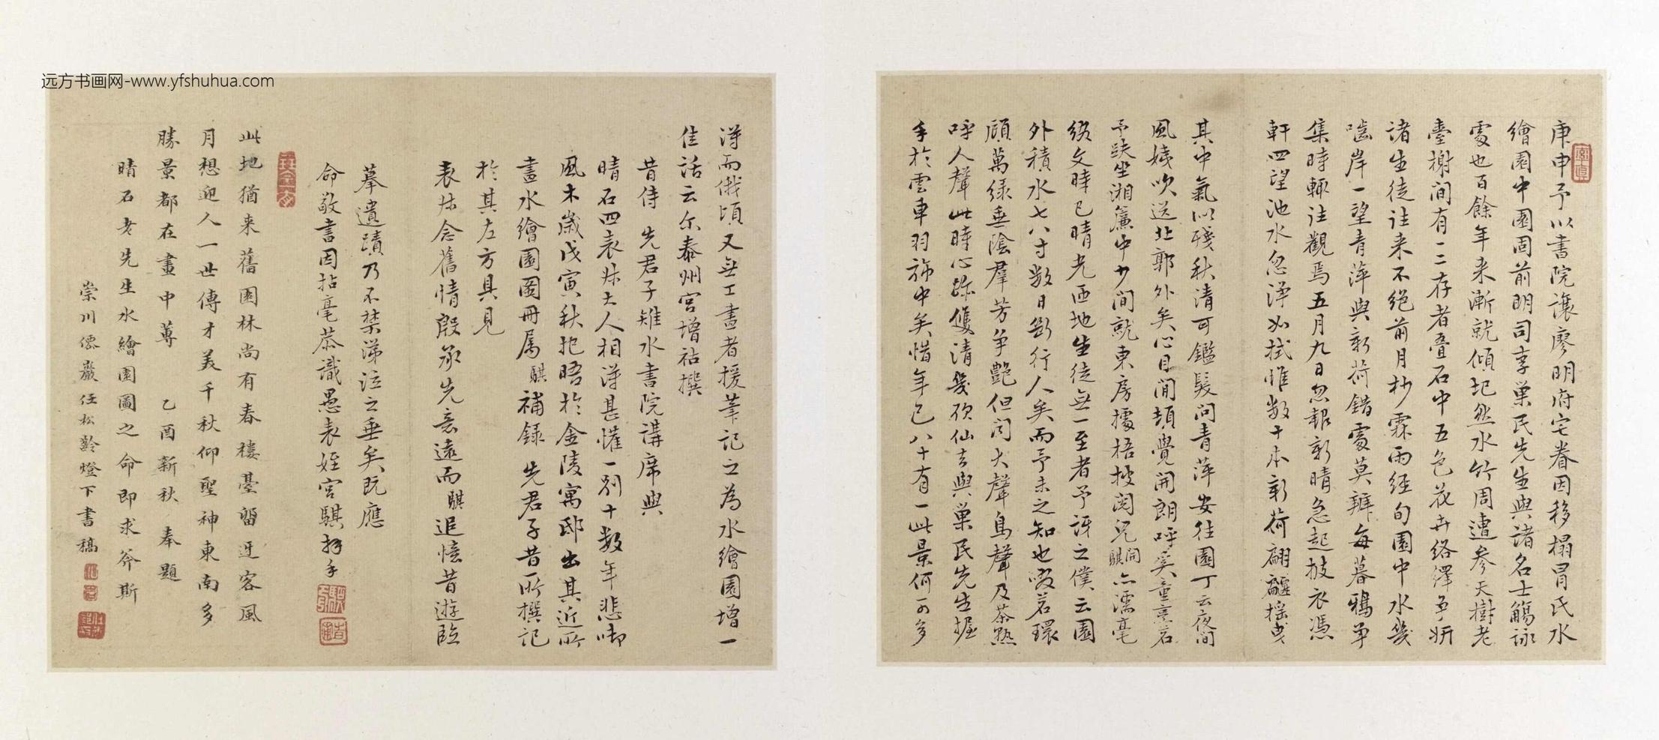 庚申予以書院讓廖明府宅眷因移榻冒氏水
繪園中園固前明司李巢民先生與諸名士觴詠
處也百餘年来漸就傾圮然水竹周遭参天樹老
臺榭間有一二存者疊石中五色花卉絡繹争妍
諸生徒往来不絕前月杪霖雨经旬園中水幾
嚙岸一望青萍與新荷錯處莫辨每暮鴉争
集時輒往觀焉五月九日忽報新晴急起披衣憑
軒四望池水忽淨如拭惟数十本新荷翩翻摇曳
其中氣似殘秋清可鑑髮问青萍安往園丁云夜间
風姨吹送北郭外矣心目間頓覺開朗呼奚童烹茗
予趺坐湘簾中少间就東房據梧披阅兒騏间亦濡毫
綴文時已晴光匝地生徒無一至者予訝之僕云園
外积水七八寸数日断行人矣而予未之知也啜茗環
顧萬绿垂陰羣芳争艷但闻犬聲鳥聲及茶熟
呼人聲此時心跡雙清幾欲仙去與巢民先生握
手於雲車羽旆中矣惜年已八十有一此景何可多
淂而俄頃又無工畫者援筆记之為水繪園增一
佳话云尔泰州宫增祜撰
昔侍先君子雉水書院講席與
晴石四表妹丈人相淂甚懽一别十数年悲啣
風木歲戊寅秋抱晤於金陵寓邸出其近所
畫水繪園圖冊属騏補録先君子昔所撰记
於其左方具見
表妹念舊情殷承先意遠而騏追憶昔遊臨
摹遺蹟乃不禁涕泣之垂矣既應
命敬書因拈毫恭識愚表姪宫騏拜手
此地猶来舊園林尚有春樓臺曾迓客風
月想迎人一世傳才美千秋仰聖神東南多
勝景都在畫中蓴 乙酉新秋奉題
晴石老先生水繪園圖之命即求斧斯
崇川儒巖任松齡燈下書稿
远方书画网-www.yfshuhua.com